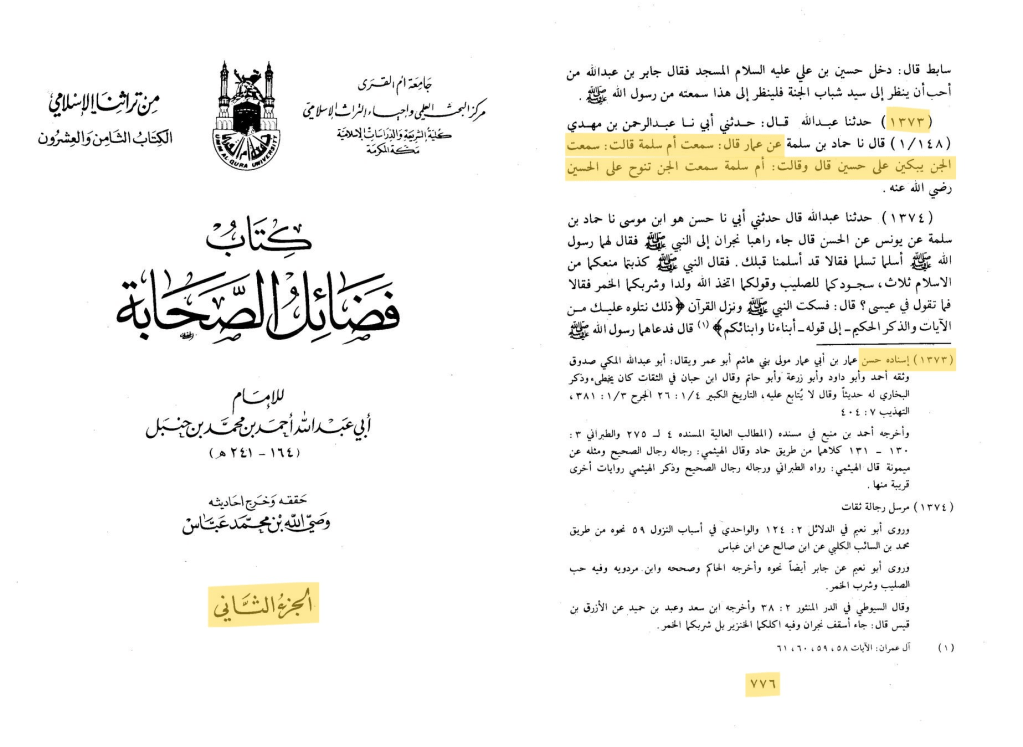 من تراثنا الإسلامي
الكتاب الثامن والعشرون
جامعة أم القرى
مركز البحث العلمي وإحياء التراث الإسلامي
كلية الشريعة والدراسات الإسلامية
مكة المكرمة
UMM AL QURA UNIVERSITY
كتاب
فضائل الصحابة
للإمام
أبي عبد الله أحمد بن محمد بن حنبل
(١٦٤ - ٢٤١ هـ)
حققه وخرج احاديثه
وصي الله بن محمد عباس
الجزء الثاني
سابط قال: دخل حسين بن علي عليه السلام المسجد فقال جابر بن عبدالله من
أحب أن ينظر إلى سيد شباب الجنة فلينظر إلى هذا سمعته من رسول الله ﷺ .
(١٣٧٣) حدثنا عبدالله قال: حدثني أبي نا عبدالرحمن بن مهدي
(١/١٤٨) قال نا حماد بن سلمة عن عمار قال: سمعت أم سلمة قالت: سمعت
الجن يبكين على حسين قال وقالت: أم سلمة سمعت الجن تنوح على الحسين
رضي الله عنه .
(١٣٧٤) حدثنا عبدالله قال حدثني أبي نا حسن هو ابن موسى نا حماد بن
سلمة عن يونس عن الحسن قال جاء راهبا نجران إلى النبي ﷺ فقال لهما رسول
الله ﷺ أسلما تسلما فقالا قد أسلمنا قبلك . فقال النبي ﷺ كذبتما منعكما من
الاسلام ثلاث، سجودكما للصليب وقولكما اتخذ الله ولدا وشربكما الخمر فقالا
فما تقول في عيسى؟ قال: فسكت النبي ﷺ ونزل القرآن ﴿ذلك نتلوه عليك من
الآيات والذكر الحكيم- إلى قوله- أبناءنا وابنائكم﴾ (١) قال فدعاهما رسول الله ﷺ
(١٣٧٣) إسناده حسن عمار بن أبي عمار مولى بني هاشم أبو عمر ويقال: أبو عبدالله المكي صدوق
وثقه أحمد وأبو داود وأبو زرعة وأبو حاتم وقال ابن حبان في الثقات كان يخطىء وذكر
البخاري له حديثاً وقال لا يُتابع عليه، التاريخ الكبير ١/٤: ٢٦ الجرح ١/٣: ٣٨١،
التهذيب ٧: ٤٠٤
وأخرجه أحمد بن منيع في مسنده (المطالب العالية المسنده ٤ لـ ٢٧٥ والطبراني ٣:
١٣٠ - ١٣١ كلاهما من طريق حماد وقال الهيثمي: رجاله رجال الصحيح ومثله عن
ميمونة قال الهيثمي: رواه الطبراني ورجاله رجال الصحيح وذكر الهيثمي روايات أخرى
قريبة منها .
(١٣٧٤) مرسل رجالة ثقات
وروى أبو نعيم في الدلائل ٢: ١٢٤ والواحدي في أسباب النزول ٥٩ نحوه من طريق
محمد بن السائب الكلبي عن ابن صالح عن ابن عباس
وروى أبو نعيم عن جابر أيضاً نحوه وأخرجه الحاكم وصححه وابن مردويه وفيه حب
الصليب وشرب الخمر.
وقال السيوطي في الدر المنثور ٢: ٣٨ وأخرجه ابن سعد وعبد بن حميد عن الأزرق بن
قيس قال: جاء أسقف نجران وفيه اكلكما الخنزير بل شربكما الخمر.
(١) آل عمران: الآيات ٥٨، ٥٩، ٦٠، ٦١
٧٧٦